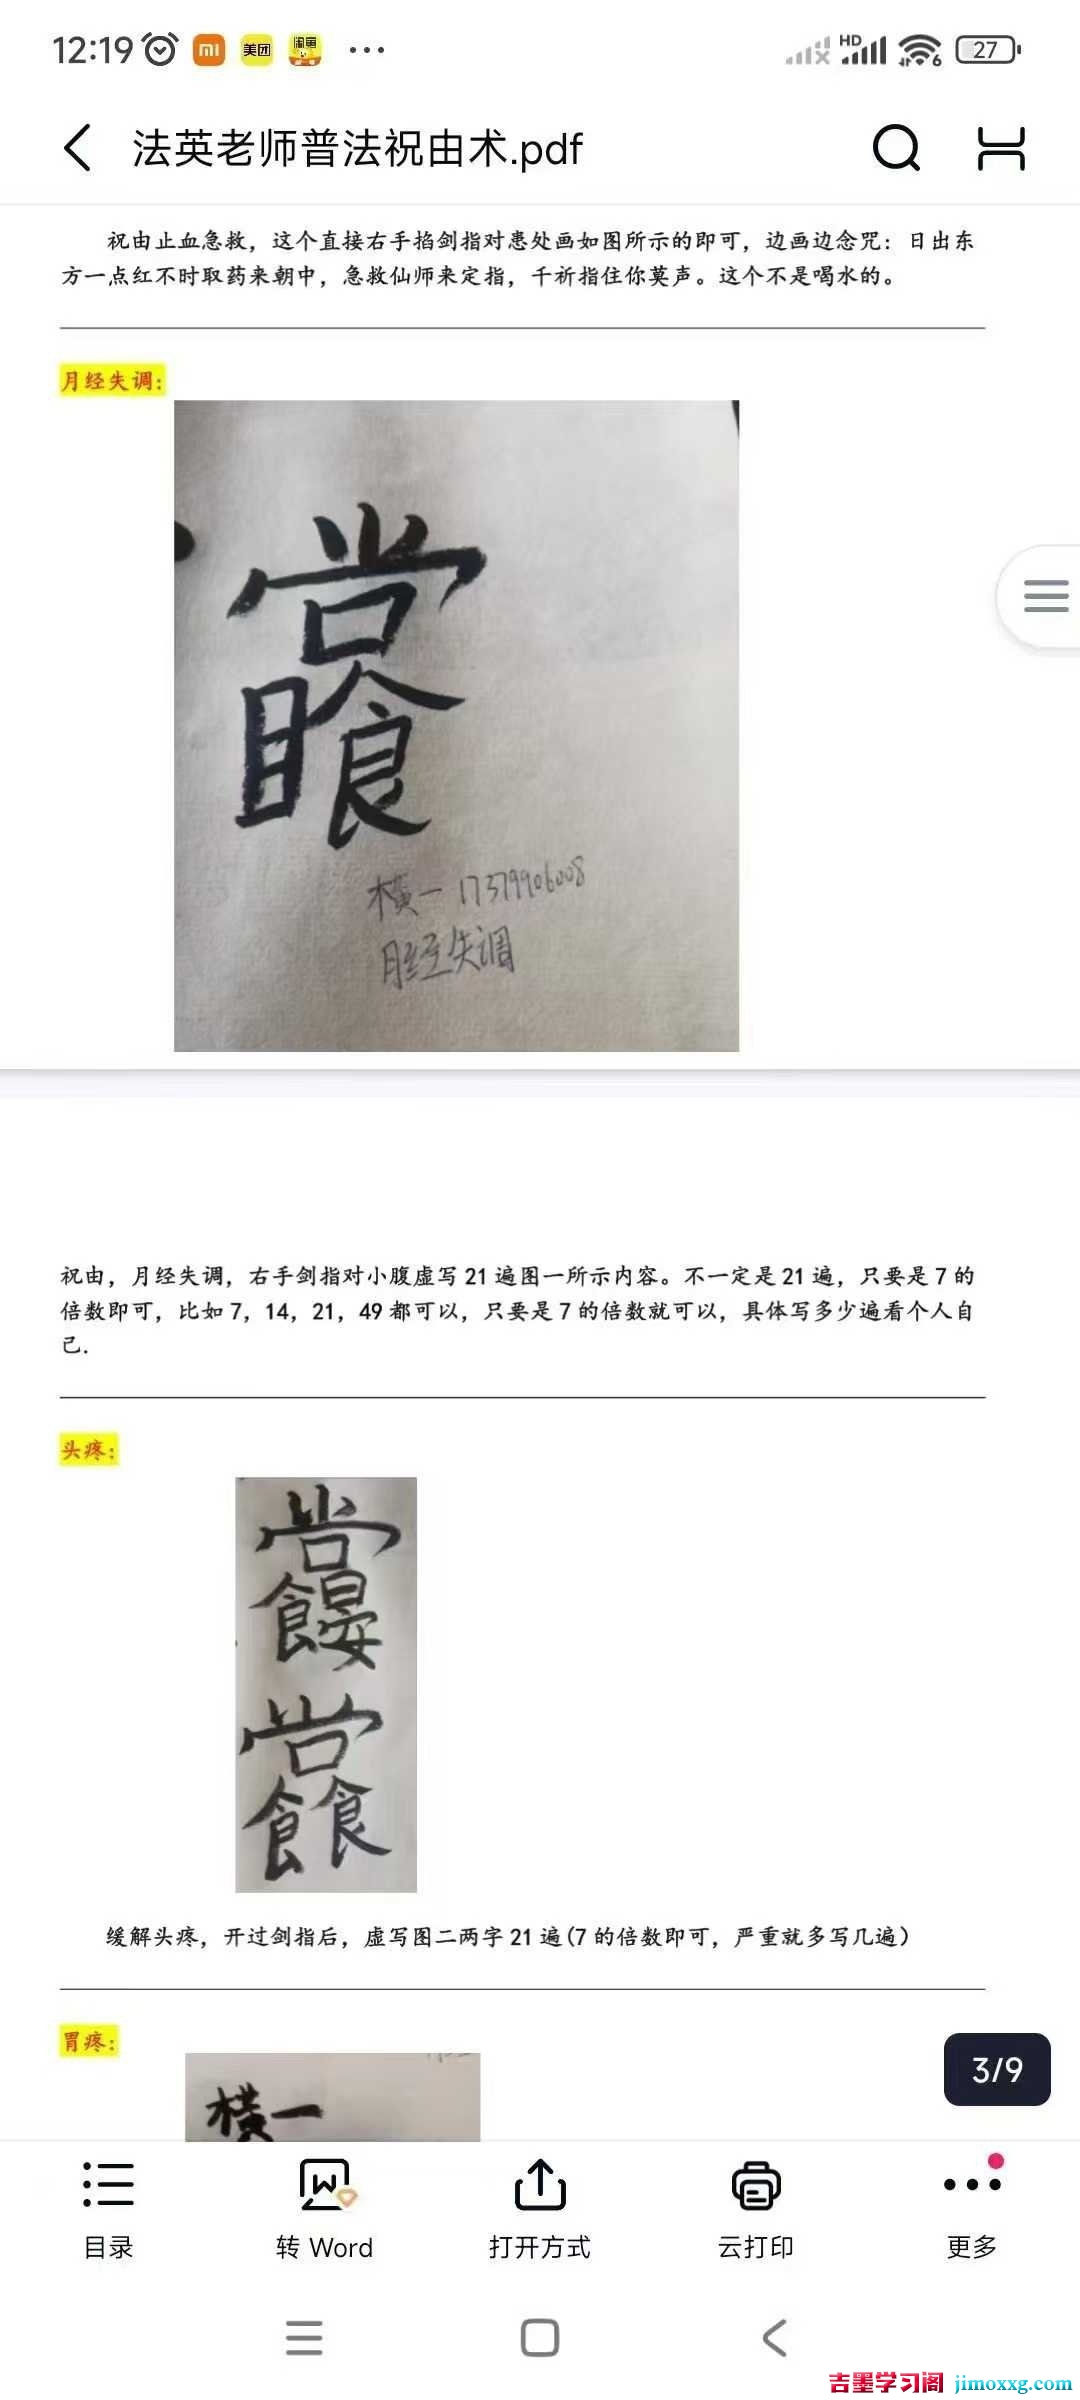 12:19 美团 闲鱼 HD 6 27
法英老师普法祝由术.pdf
祝由止血急救，这个直接右手掐剑指对患处画如图所示的即可，边画边念咒：日出东
方一点红不时取药来朝中，急救仙师来定指，千祈指住你莫声。这个不是喝水的。
月经失调：
横一 17379906008
月经失调
祝由，月经失调，右手剑指对小腹虚写 21 遍图一所示内容。不一定是 21 遍，只要是 7 的
倍数即可，比如 7，14，21，49 都可以，只要是 7 的倍数就可以，具体写多少遍看个人自
己.
头疼：
缓解头疼，开过剑指后，虚写图二两字 21 遍(7 的倍数即可，严重就多写几遍）
胃疼：
横一
3/9
目录 转 Word 打开方式 云打印 更多
吉墨学习阁 jimoxxg.com